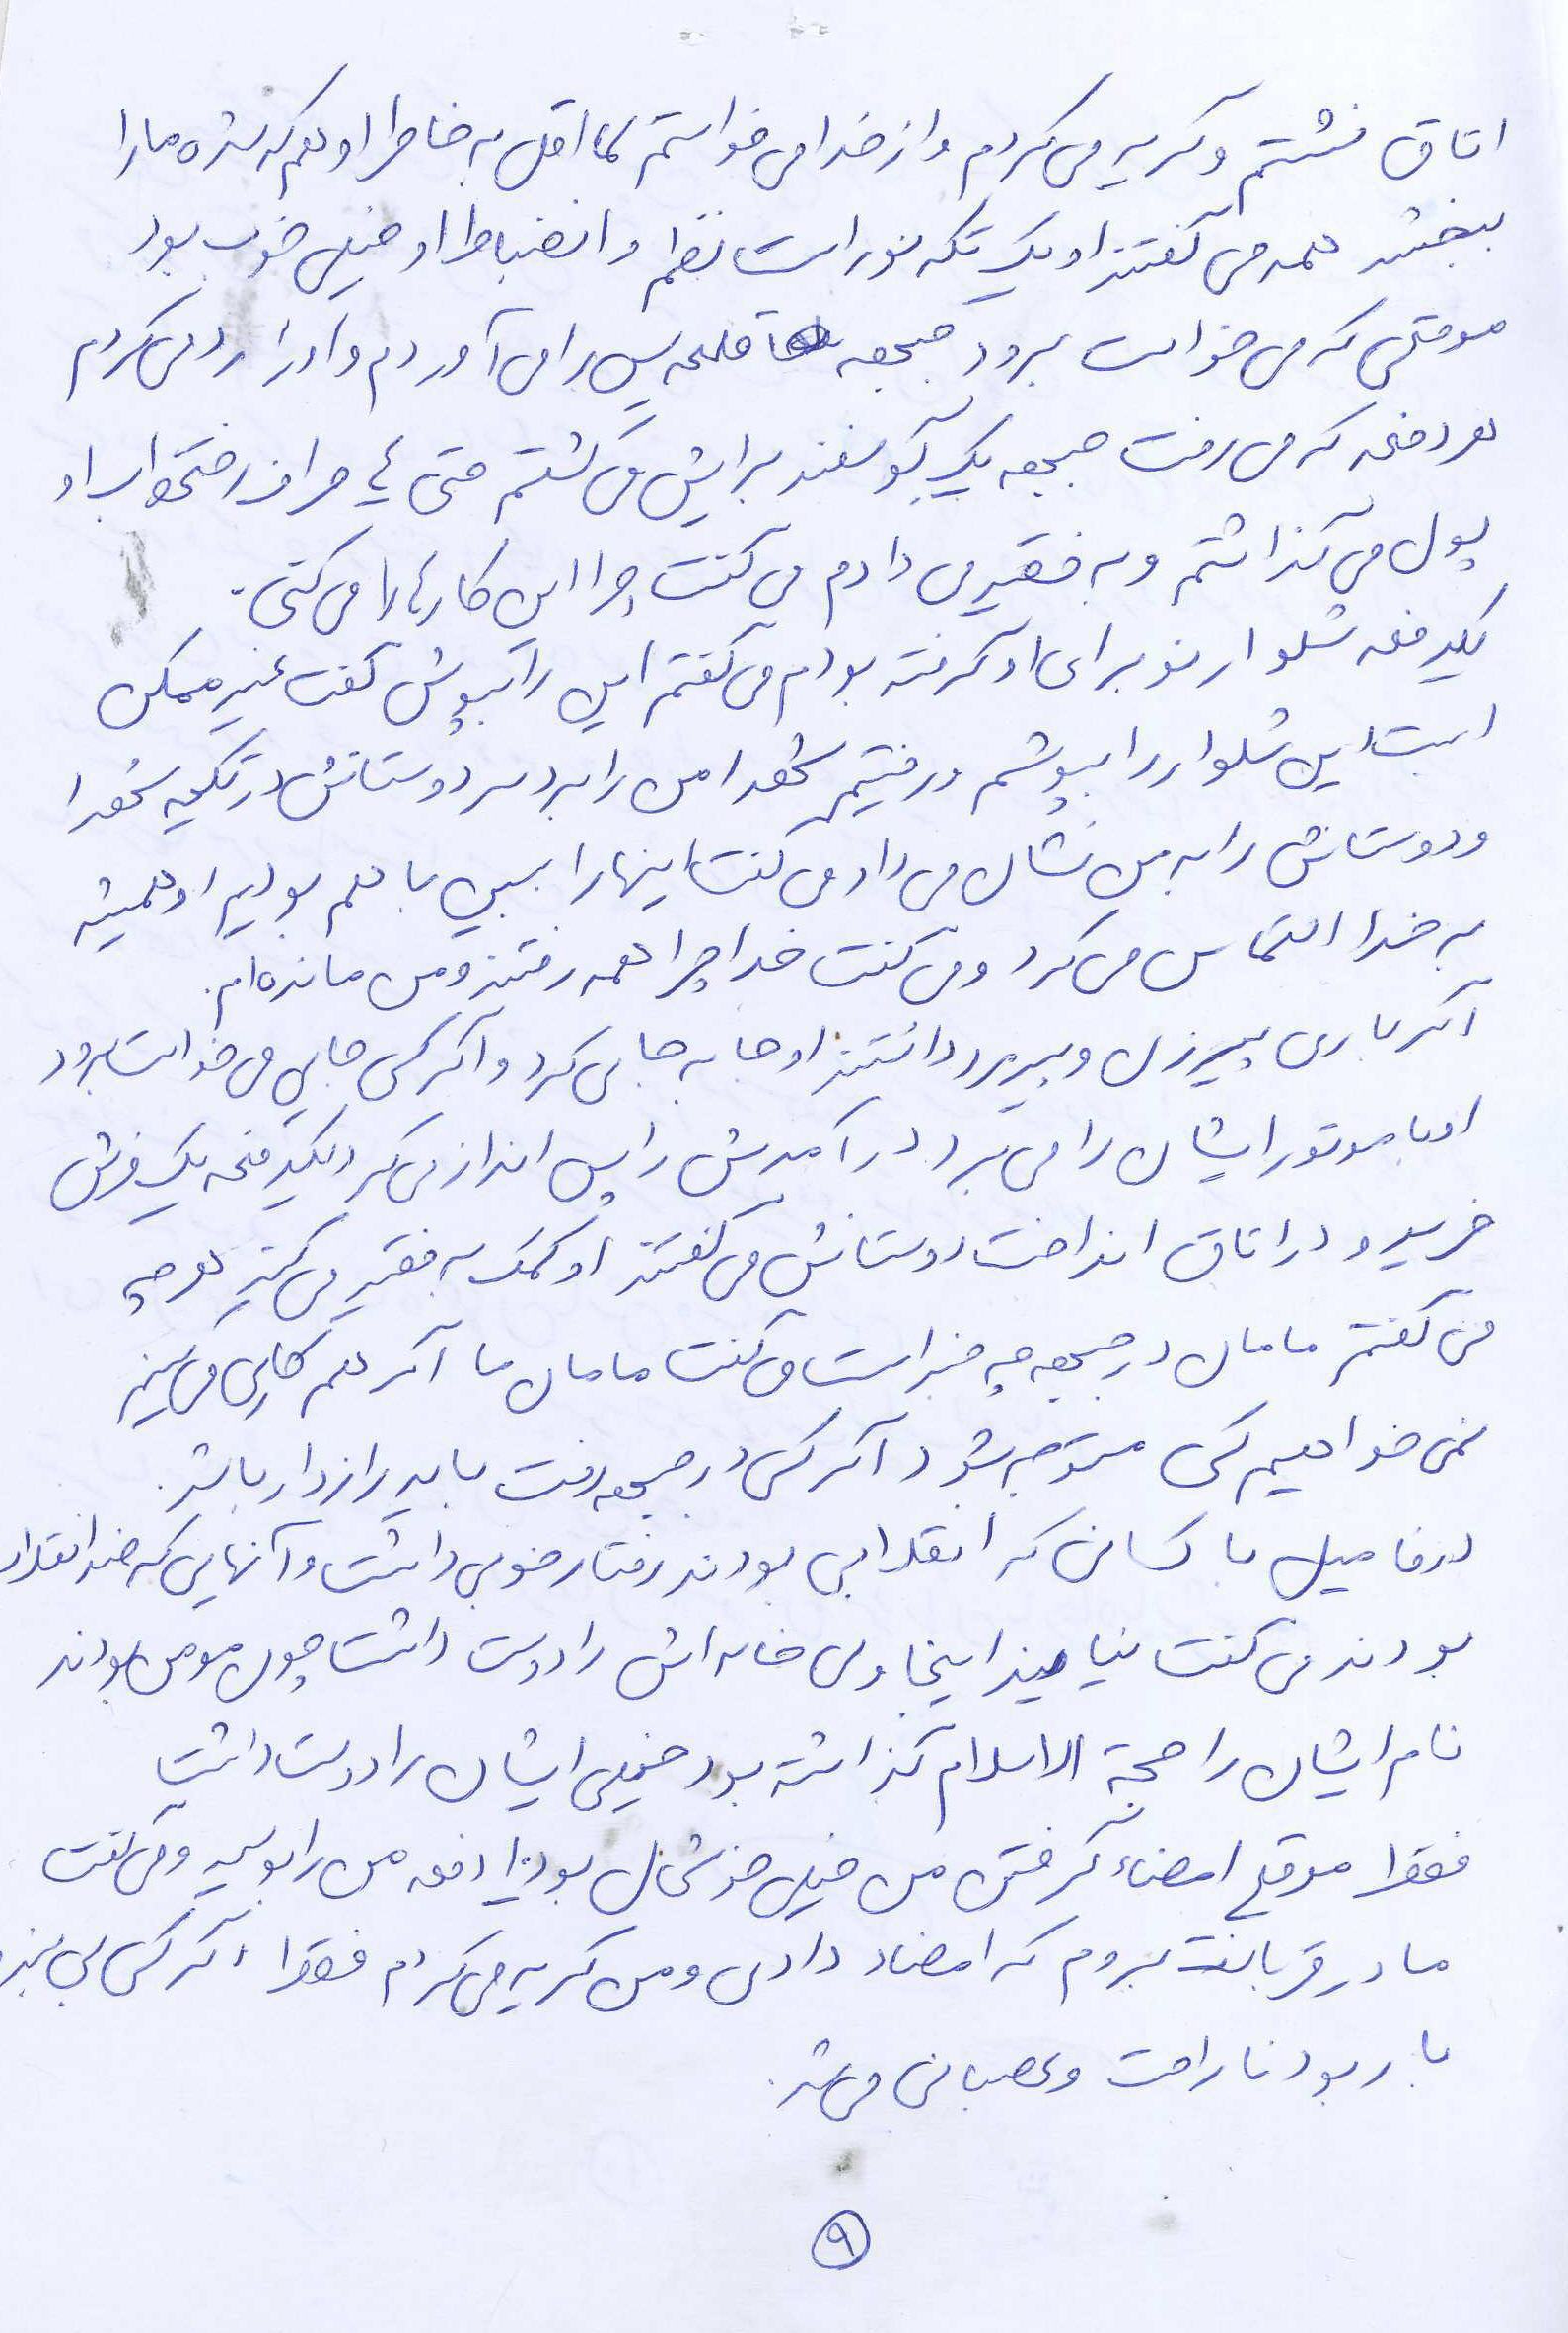 اتاق نشستم وگریه می کردم و از خدا می خواستم لااقل به خاطر او هم که شده ما را
ببخشد همه می گفتند او یک تکه نور است نظم و انضباط او خیلی خوب بود
موقعی که می خواست برود جبهه یس را می آوردم و او را رد می کردم
هر دفعه که می رفت جبهه یک گوسفند برایش می کشتم حتی اطراف رختخواب او
پول می گذاشتم و به فقیر می دادم می گفت چرا این کارها را می کنی.
یکدفعه شلوار نو برای او گرفته بودم می گفتم این را بپوش گفت غیر ممکن
است این شلوار را بپوشم و رفتیم شهدا من را برد سر دوستانش در تکیه شهدا
و دوستانش را به من نشان می داد می گفت اینها را ببین با هم بودیم او همیشه
به خدا التماس می کرد و می گفت خدا چرا همه رفتند و من مانده ام.
اگر باری پیرزن و پیرمرد داشتند او جا به جا می کرد و اگر کسی جایی می خواست برود
او با موتور ایشان را می برد در آمدش را پس انداز می کرد یکدفعه یک فرش
خرید و در اتاق انداخت دوستانش می گفتند او کمک به فقیر می کند هر چه
می گفتم مامان در جبهه چه خبر است می گفت مامان ما اگر هم کاری می کنیم
نمی خواهیم کسی متوجه بشود اگر کسی در جبهه رفت باید رازدار باشد.
در فامیل با کسانی که انقلابی بودند رفتار خوبی داشت و آنهایی که ضد انقلاب
بودند می گفت نیایند اینجا ولی خاله اش را دوست داشت چون مومن بودند
نام ایشان را حجة الاسلام گذاشته بود خیلی ایشان را دوست داشت
فقط موقع امضاء گرفتن من خیلی خوشحال بود دفعه من را بوسید و می گفت
مادر قربانت بروم که امضاء دادی و من گریه می کردم فقط اگر کسی بی بند
بار بود ناراحت و عصبانی می شد.
۹